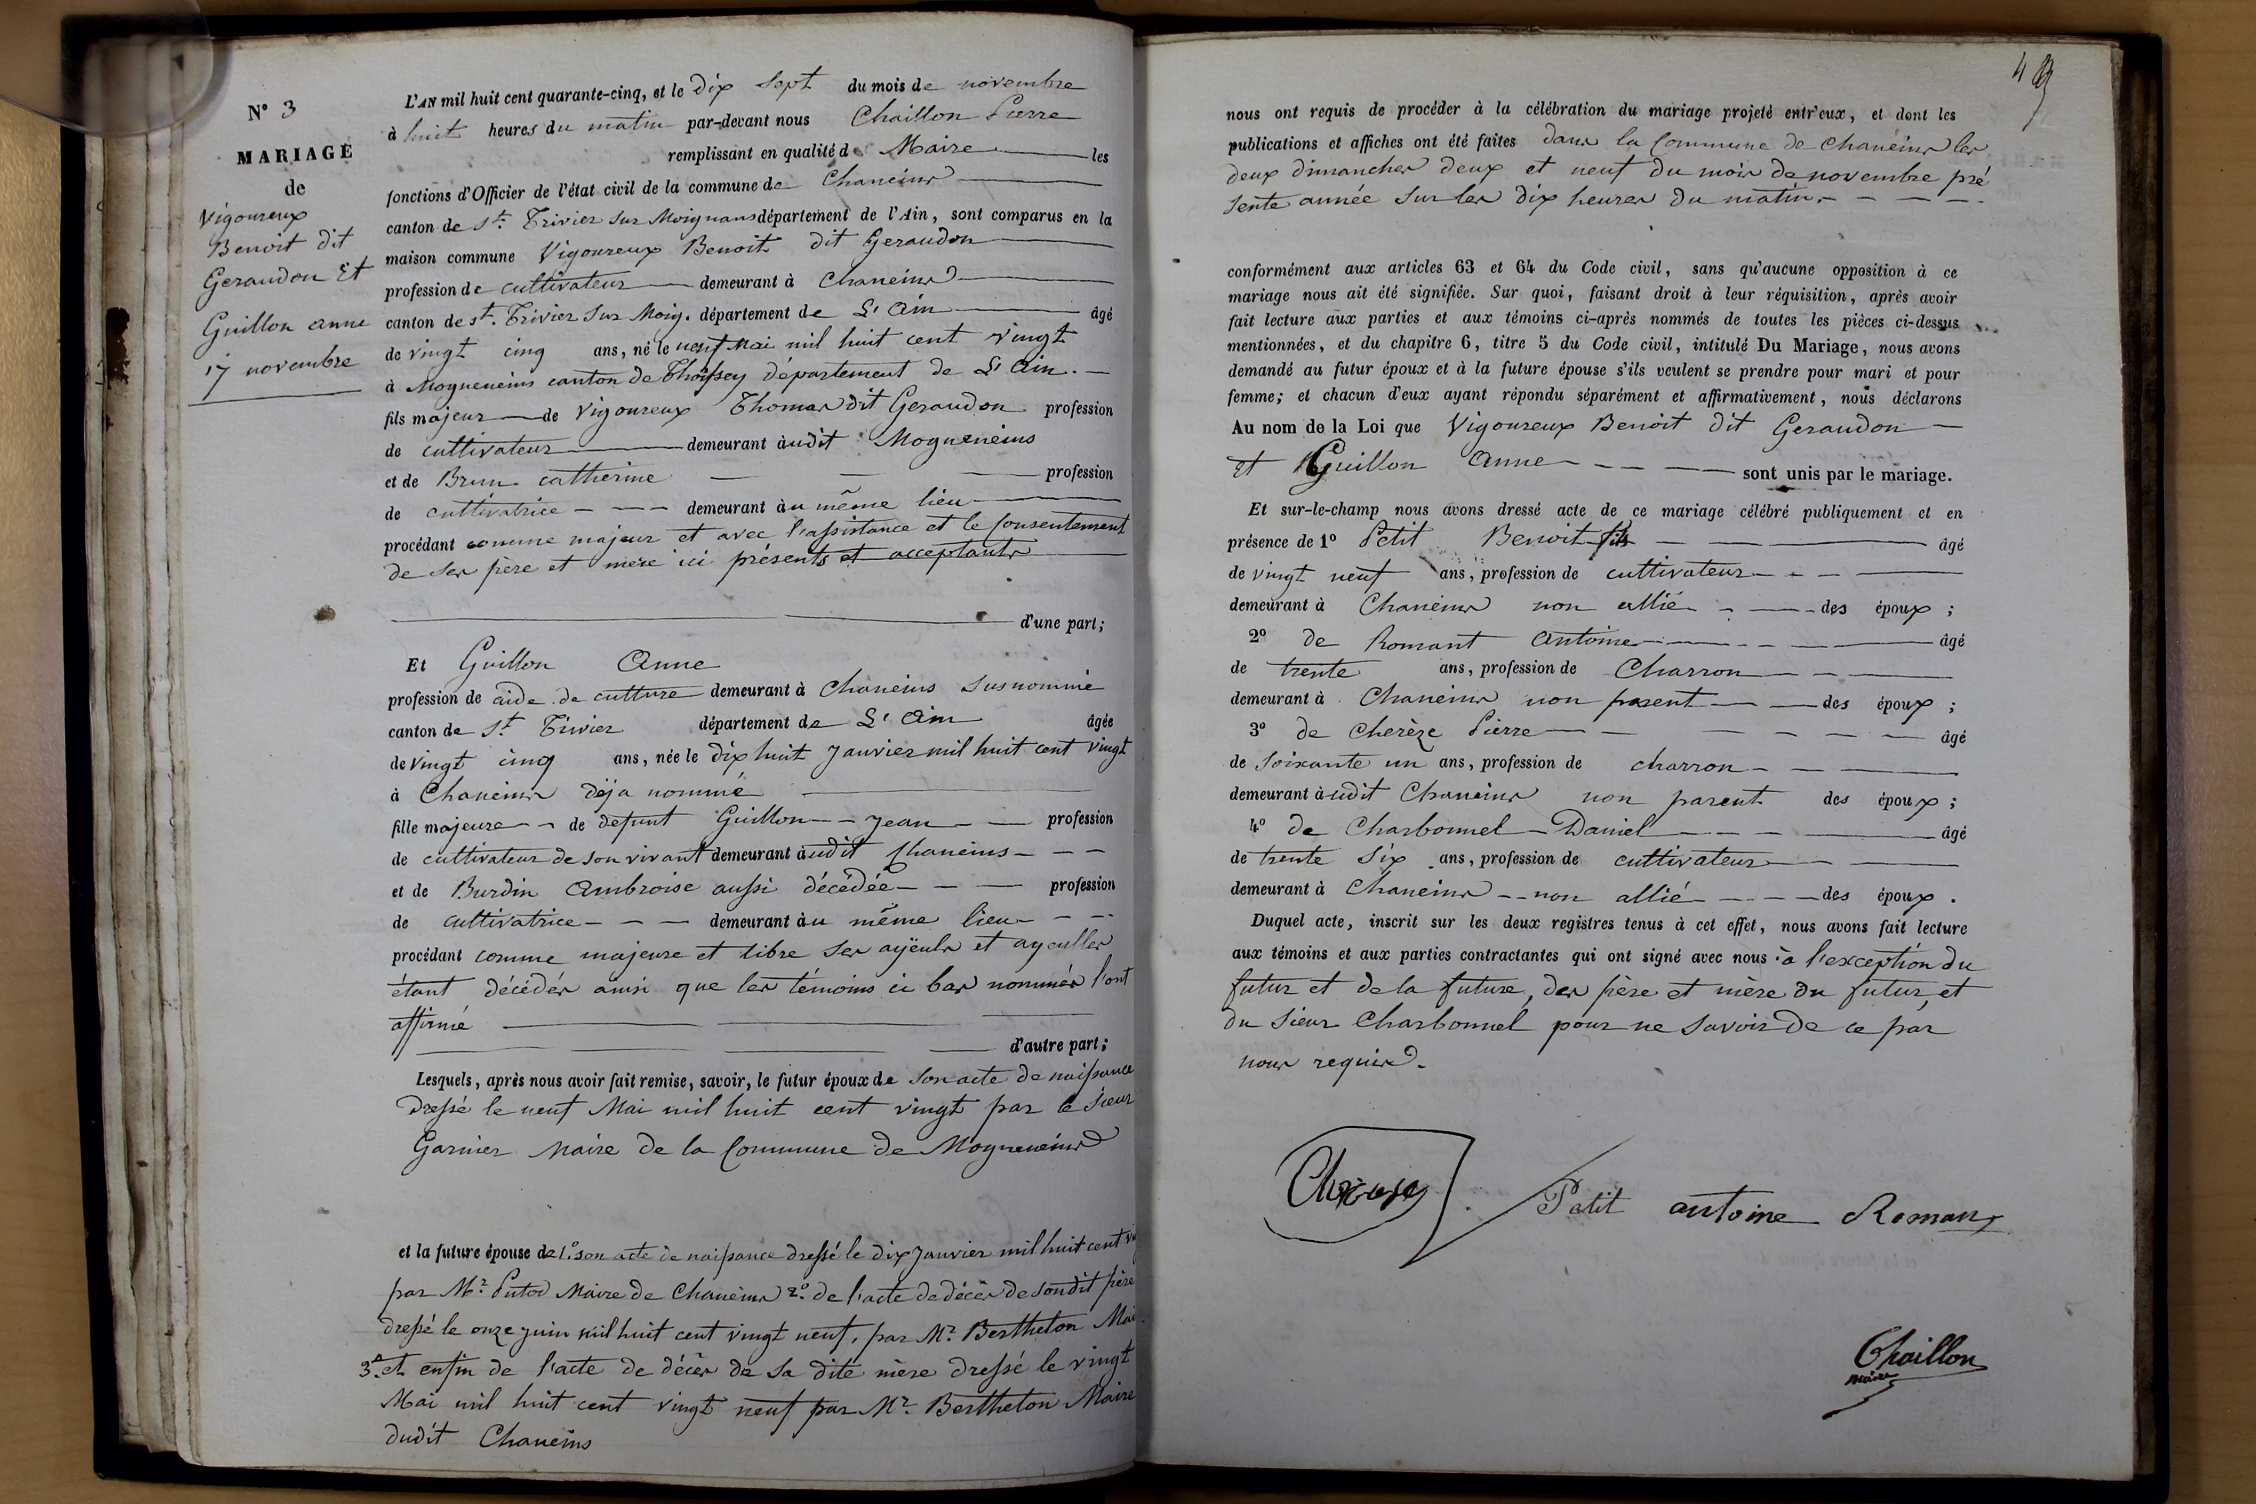 N° 3
MARIAGE
de
Vigoureux
Benoit dit
Geraudon Et
Guillon anne
17 novembre
L'AN mil huit cent quarante-cinq, et le dix sept du mois de novembre
à huit heures du matin par-devant nous Chaillon Pierre
remplissant en qualité de Maire les
fonctions d'Officier de l'état civil de la commune de Chaneins
canton de St. Trivier sur Moignans département de l'Ain, sont comparus en la
maison commune Vigoureux Benoit dit Geraudon
profession de cultivateur demeurant à Chaneins
canton de St. Trivier sur Moig. département de L'Ain âgé
de vingt cinq ans, né le neuf Mai mil huit cent vingt
à Mogneneins canton de Thoissey département de L'Ain.
fils majeur de Vigoureux Thomas dit Geraudon profession
de cultivateur demeurant àudit Mogneneins
et de Brun catherine profession
de cultivatrice demeurant àu même lieu
procédant comme majeur et avec l'assistance et le Consentement
de ses père et mère ici présents et acceptants
d'une part;
Et Guillon Anne
profession de aide de culture demeurant à Chaneins susnommé
canton de St. Trivier département de L'Ain âgée
de vingt cinq ans, née le dix huit Janvier mil huit cent vingt
à Chaneins déja nommé
fille majeure de defunt Guillon Jean profession
de cultivateur de son vivant demeurant àudit Chaneins
et de Burdin Ambroise aussi décédée profession
de cultivatrice demeurant àu même lieu
procédant comme majeure et libre ses ayëuls et ayeulles
étant décédés ainsi que les témoins ci bas nommés l'ont
affirmé
d'autre part;
Lesquels, après nous avoir fait remise, savoir, le futur époux de son acte de naissance
dressé le neuf Mai mil huit cent vingt par le sieur
Garnier Maire de la Commune de Mogneneins
et la future épouse de 1.° son acte de naissance dressé le dix Janvier mil huit cent
par Mr. Putod Maire de Chaneins 2.° de l'acte de décès de sondit père
dressé le onze juin mil huit cent vingt neuf, par Mr. Bertheton Mai
3.° et enfin de l'acte de décès de sa dite mère dressé le vingt
Mai mil huit cent vingt neuf par Mr. Bertheton Maire
dudit Chaneins
nous ont requis de procéder à la célébration du mariage projeté entr'eux, et dont les
publications et affiches ont été faites dans la Commune de Chaneins les
deux dimanches deux et neuf du mois de novembre pré
sente année sur les dix heures du matin.
conformément aux articles 63 et 64 du Code civil, sans qu'aucune opposition à ce
mariage nous ait été signifiée. Sur quoi, faisant droit à leur réquisition, après avoir
fait lecture aux parties et aux témoins ci-après nommés de toutes les pièces ci-dessus
mentionnées, et du chapitre 6, titre 5 du Code civil, intitulé Du Mariage, nous avons
demandé au futur époux et à la future épouse s'ils veulent se prendre pour mari et pour
femme; et chacun d'eux ayant répondu séparément et affirmativement, nous déclarons
Au nom de la Loi que Vigoureux Benoit dit Geraudon
et Guillon Anne sont unis par le mariage.
Et sur-le-champ nous avons dressé acte de ce mariage célébré publiquement et en
présence de 1° Petit Benoit fils âgé
de vingt neuf ans, profession de cultivateur
demeurant à Chaneins non allié des époux;
2° de Romant Antoine âgé
de trente ans, profession de Charron
demeurant à Chaneins non parent des époux;
3° de Cherèze Pierre âgé
de soixante un ans, profession de charron
demeurant àudit Chaneins non parent des époux;
4° de Charbonnel Daniel âgé
de trente six ans, profession de cultivateur
demeurant à Chaneins non allié des époux.
Duquel acte, inscrit sur les deux registres tenus à cet effet, nous avons fait lecture
aux témoins et aux parties contractantes qui ont signé avec nous à l'exception du
futur et de la future, des père et mère du futur, et
du sieur Charbonnel pour ne savoir de ce par
nous requis.
Petit antoine Roman
Chaillon
maire